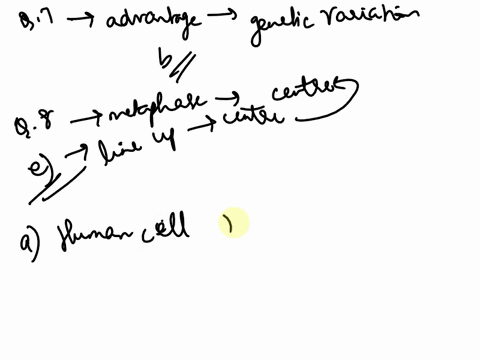 Q.7 → advantage → genetic variation
b
Q.8 → metaphase → centre
e) → line up → centre
a) Human cell )